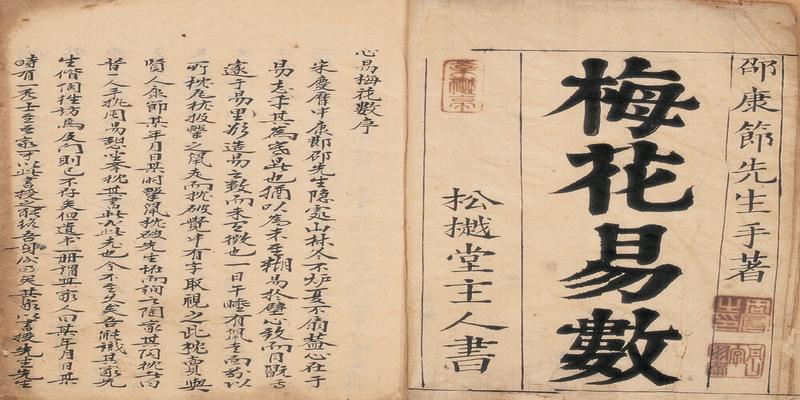 邵康節先生手著
梅花易數
松樾堂主人書
心易梅花數序
宋慶曆中康節邵先生隐處山林冬不炉夏不扇蓋心在于
易忘乎其為寒暑也猶以為未至糊易於壁心致而目翫焉
邃于易理欲造易之數而未有徵也一日午睡有鼠走而前以
所枕瓦枕投擊之鼠走而枕破覺中有字取視之此枕賣與
賢人康節某年月日某時擊鼠枕破先生恠而詢之陶家其陶枕者曰
昔一人手執周易憩坐舉枕其書此必此老也今不至久矣吾能識其家先
生偕陶往訪焉及門則已不存矣但遺書一冊謂其家人曰某年月日某
時有一秀士至吾家可以此書授之能終吾矣其家以書授先生先生